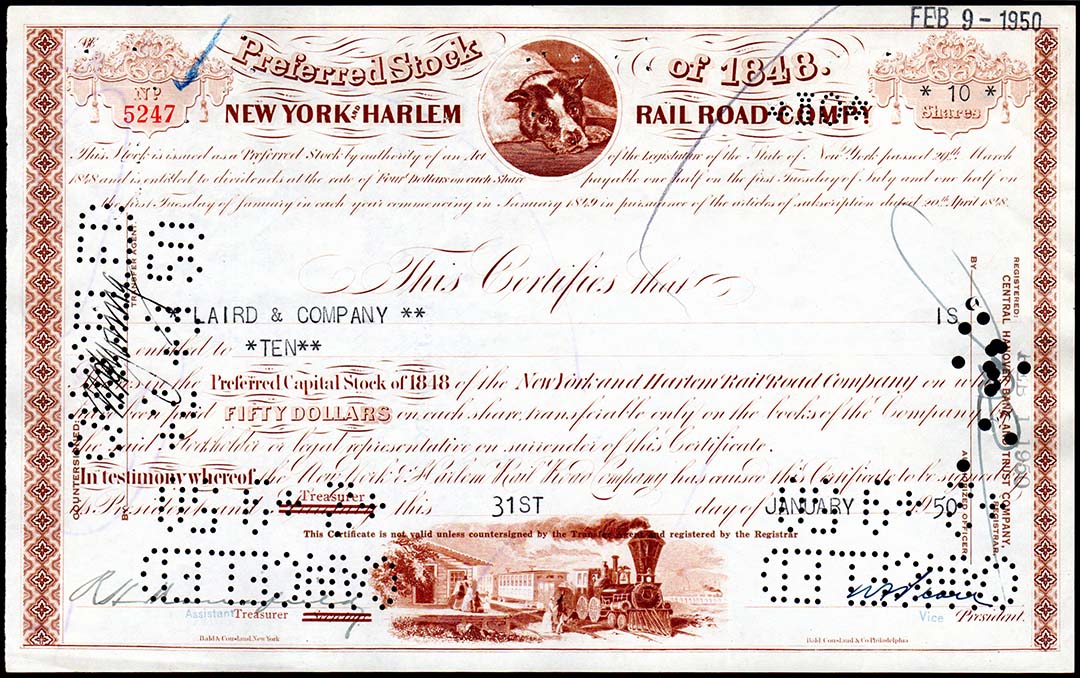 FEB 9 - 1950
Preferred Stock of 1848.
Nº 5247
* 10 * Shares
NEW YORK AND HARLEM RAIL ROAD COMPY
This Stock is issued as a Preferred Stock by authority of an Act of the Legislature of the State of New York passed 29th March
1848 and is entitled to dividends at the rate of Four Dollars on each Share payable one half on the first Tuesday of July and one half on
the first Tuesday of January in each year commencing in January 1849 in pursuance of the articles of subscription dated 20th April 1848.
This Certifies that
* LAIRD & COMPANY ** IS
entitled to *TEN**
in the Preferred Capital Stock of 1848 of the New York and Harlem Rail Road Company on
been paid FIFTY DOLLARS on each share, transferable only on the books of the Company
the said Stockholder or legal representative on surrender of this Certificate.
In testimony whereof, the New York & Harlem Rail Road Company has caused this Certificate to be signed
Treasurer
President and this 31ST day of JANUARY 50
This Certificate is not valid unless countersigned by the Transfer Agent and registered by the Registrar
Assistant Treasurer
Vice President.
Bald & Cousland, New York
Bald Cousland & Co Philadelphia
COUNTERSIGNED:
BY
TRANSFER AGENT.
REGISTERED:
CENTRAL HANOVER BANK AND TRUST COMPANY,
REGISTRAR
BY
AUTHORIZED OFFICER